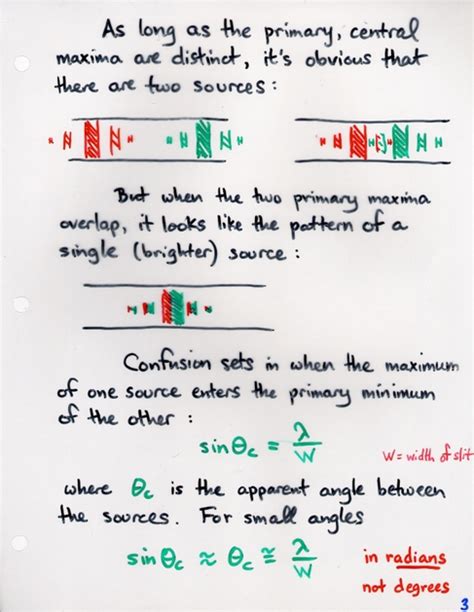 As long as the primary, central
maxima are distinct, it's obvious that
there are two sources:
But when the two primary maxima
overlap, it looks like the pattern of a
single (brighter) source:
Confusion sets in when the maximum
of one source enters the primary minimum
of the other:
sin θc = λ/W
W = width of slit
where θc is the apparent angle between
the sources. For small angles
sin θc ≈ θc ≅ λ/W
in radians
not degrees
3